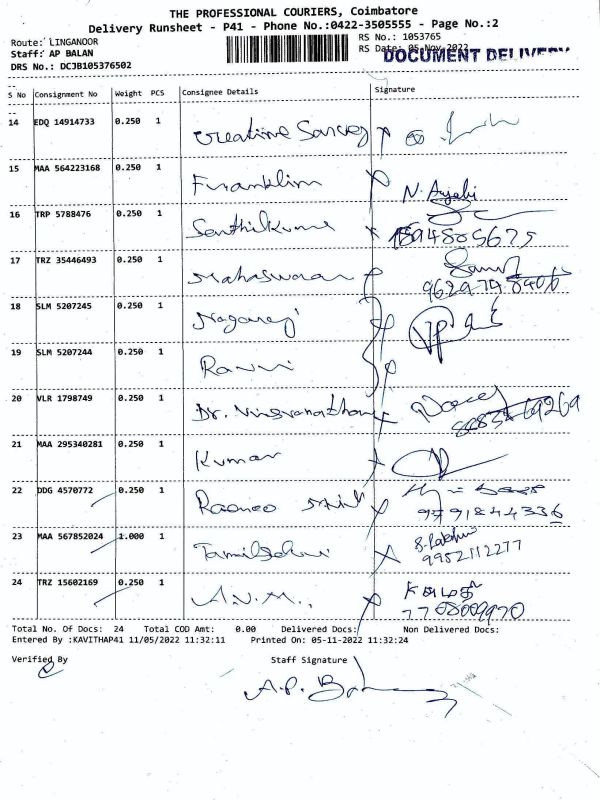 THE PROFESSIONAL COURIERS, Coimbatore
Delivery Runsheet - P41 - Phone No.:0422-3505555 - Page No.:2
Route: LINGANOOR RS No.: 1053765
Staff: AP BALAN RS Date: 05-Nov-2022
DRS No.: DCJB105376502 DOCUMENT DELIVERY
S No Consignment No Weight PCS Consignee Details Signature
14 EDQ 14914733 0.250 1 Creative
15 MAA 564223168 0.250 1 Franklin N. Ayabi
16 TRP 5788476 0.250 1 Senthilkumar
17 TRZ 35446493 0.250 1 Mahaswaran
18 SLM 5207245 0.250 1 Nagaraj
19 SLM 5207244 0.250 1
20 VLR 1798749 0.250 1 Dr. Viswanathan
21 MAA 295340281 0.250 1 Kumar
22 DDG 4570772 0.250 1 9791844336
23 MAA 567852024 1.000 1 Tamilselvi S. Lakshmi
9952112277
24 TRZ 15602169 0.250 1 A.V.M.
7708009970
Total No. Of Docs: 24 Total COD Amt: 0.00 Delivered Docs: Non Delivered Docs:
Entered By :KAVITHAP41 11/05/2022 11:32:11 Printed On: 05-11-2022 11:32:24
Verified By Staff Signature
A.P. Balan